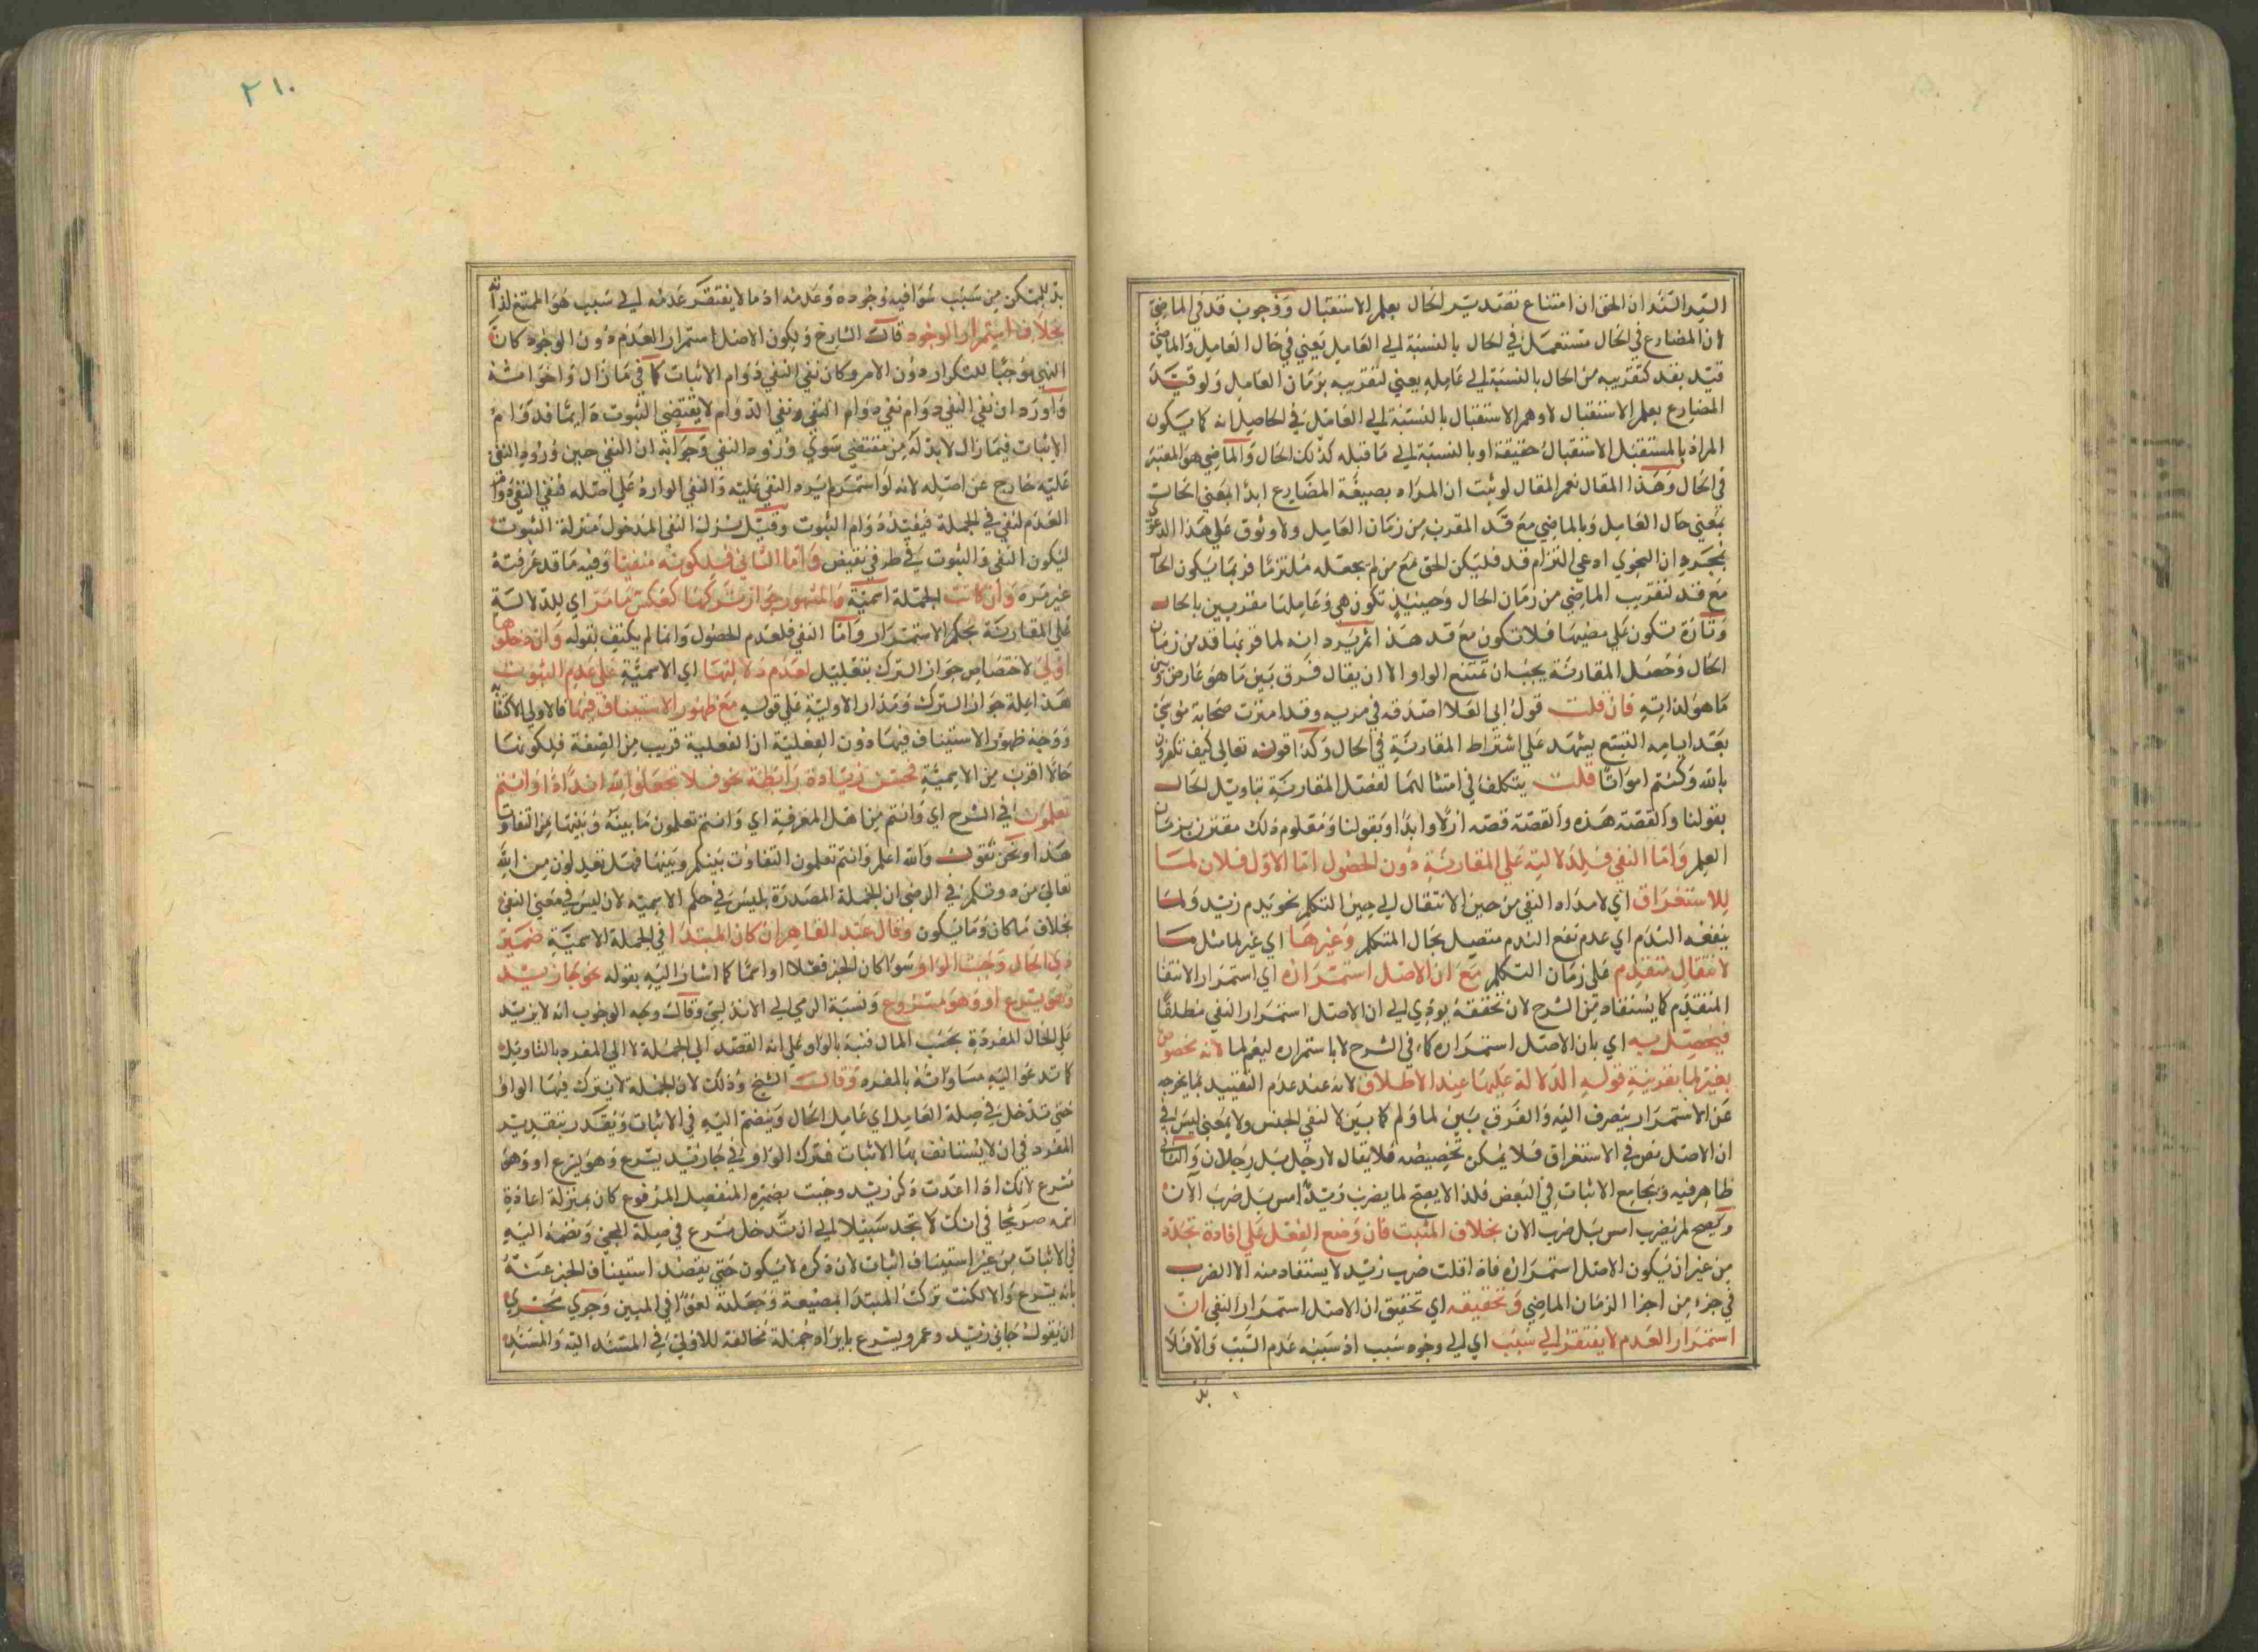 السيد السند ان الحق ان امتناع تصدير الحال بعلم الاستقبال ووجوب قد في الماضي
لان المضارع في الحال مستعمل في الحال بالنسبة الي العامل يعني في حال العامل والماضي
قيد بقد لتقريبه من الحال بالنسبة الي عامله يعني لتقريبه بزمان العامل ولو قيد
المضارع بعلم الاستقبال لاوهم الاستقبال بالنسبة الي العامل في الحاصل انه كما يكون
المراد بالمستقبل الاستقبال حقيقة او بالنسبة الي ما قبله كذلك الحال والماضي هو المعتبر
في الحال وهذا المقال نعم المقال لو ثبت ان المراد بصيغة المضارع ابدا المعني الحال
بمعني حال العامل وبالماضي مع قد المقرب من زمان العامل ولا وثوق علي هذا الدعوي
بمجرد ان النحوي ادعي التزام قد فليكن الحق مع من لم يجعله ملتزما فربما يكون الحال
مع قد لتقريب الماضي من زمان الحال وحينئذ تكون هي وعاملها مقتربين بالحال
وتارة تكون علي مضيها فلا تكون مع قد هذا ثم يرد انه لما قربها قد من زمان
الحال وحصل المقارنة يجب ان تمتنع الواو الا ان يقال فرق بين ما هو عارض وبين
ما هو لذاته فان قلت قول ابي العلا اصدقه في مرية وقد امترت صحابة موسي
بعد اياته التسع يشهد علي اشتراط المقارنة في الحال وكذا قوله تعالي كيف تكفرون
بالله وكنتم امواتا قلت يتكلف في امثالهما لفصل المقارنة بتاويل الحال
بقولنا والقصة هذه والقصة قصه ازلا وابدا وبقولنا ومعلوم ذلك مقترن بزمان
العلم واما النفي فلدلالته علي المقارنة دون الحصول اما الاول فلان لما
للاستغراق اي لامتداد النفي من حين الانتقال الي حين التكلم نحو يدم زيد ولما
ينفعه الندم اي عدم نفع الندم متصل بحال المتكلم وغيرها اي غير لما مثل ما
لانتقال متقدم علي زمان التكلم مع ان الاصل استمراره اي استمرار الانتفا
المتقدم كما يستفاد من الشرح لان تحققه يودي الي ان الاصل استمرار النفي مطلقا
فيحصل به اي بان الاصل استمراره كما في الشرح لا باستمراره ليعم لما لانه مخصوص
بغير لما بقرينة قوله الدلالة عليها عند الاطلاق لانه عند عدم التقييد بما يخرجه
عن الاستمرار ينصرف اليه والفرق بين لما ولم كما بين لا لنفي الجنس ولا بمعني ليس في
ان الاصل نص في الاستغراق فلا يمكن تخصيصه فلا يقال لا رجل بل رجلان والثاني
ظاهر فيه ويجامع الاثبات في البعض فلذا لا يصح لما يضرب زيد امس بل ضرب الآن
ويصح لم يضرب امس بل ضرب الان بخلاف المثبت فان وضع الفعل علي افادة تجدد
من غير ان يكون الاصل استمراره فاذا قلت ضرب زيد لا يستفاد منه الا الضرب
في جزء من اجزا الزمان الماضي وتحقيقه اي تحقيق ان الاصل استمرار النفي ان
استمرار العدم لا يفتقر الي سبب اي الي وجود سبب اذ سببه عدم السبب والا فلا
بد
٢١٠
بد للممكن من سبب سوا فيه وجوده وعدمه اذ ما لا يفتقر عدمه الي سبب هو الممتنع لذاته
بخلاف استمرار الوجود قال الشارح ولكون الاصل استمرار العدم دون الوجود كان
النهي موجبا للتكرار دون الامر وكان نفي النفي دوام الاثبات كما في ما زال واخواته
واورد ان نفي النفي دوام نفي دوام النفي ونفي الدوام لا يقتضي الثبوت دايما فدوام
الاثبات فيما زال لا بد له من مقتضي سوي ورود النفي وجوابه ان النفي حين ورود النفي
عليه خارج عن اصله لانه لو استمر لم يرد النفي عليه والنفي الوارد علي اصله فنفي النفي
العدم لنفي في الجملة فيفيد دوام الثبوت وقيل نزل النفي المدخول منزلة الثبوت
ليكون النفي والثبوت في طرفي نقيض واما الثاني فلكونه منفيا وفيه ما قد عرفته
غير مرة وان كانت الجملة اسمية والمشهور جواز تركها كعكس ما مر اي للدلالة
علي المقارنة بحكم الاستمرار واما النفي فلعدم الحصول وانما لم يكتف بقوله وان دخولها
اولي لاختصاص جواز الترك بتعليل لعدم دلالتها اي الاسمية علي عدم الثبوت
هذا علة جواز الترك ومدار الاولية علي قوله مع ظهور الاستيناف فيها فالاولي الاكتفا به
ووجه ظهور الاستيناف فيها دون الفعلية ان الفعلية قريب من الصفة فلكونها
حالا اقرب من الاسمية فحسن زيادة رابطة نحو فلا تجعلوا لله اندادا وانتم
تعلمون في الشرح اي وانتم من اهل المعرفة اي وانتم تعلمون ما بينه وبينها من التفاوت
هذا ونحن نقول والله اعلم وانتم تعلمون التفاوت بينكم وبينها فهل تعبدون من الله
تعالي من دونكم في الرضي ان الجملة المصدرة بليس في حكم الاسمية لان ليس في معني النفي
بخلاف ما كان وما يكون وقال عبد القاهر ان كان المبتدا في الجملة الاسمية ضمير
ذي الحال وجبت الواو سوا كان الخبر فعلا او اسما كما اشار اليه بقوله نحو جا زيد
وهو يسرع او وهو مسرع ونسبة الرضي الي الاندلسي وقال وجه الوجوب انه لا يزيد
علي الحال المفردة بحسب المال فنبه بالواو علي انه القصد الي الجملة لا الي المفرد بالتاويل
كما تدعو اليه مساواته بالمفرد وقال الشيخ وذلك لان الجملة لا يترك فيها الواو
حتي تدخل في صلة العامل اي عامل الحال وينضم اليه في الاثبات ويقدر بتقدير
المفرد في ان لا يستانف بها الاثبات فترك الواو في جا زيد يسرع وهو يسرع او وهو
مسرع لانك اذا اعدت ذكر زيد وجيت بضميره المنفصل المرفوع كان بمنزلة اعادة
اسمه صريحا في انك لا تجد سبيلا الي ان تدخل يسرع في صلة المجي وتضمه اليه
في الاثبات من غير استيناف اثبات لان ذكره لا يكون حتي يقصد استيناف الخبر عنه
بانه يسرع والا لكنت تركت المبتدا بمضيعة وجعلته لغوا في البين وجري مجري
ان يقول جاني زيد وعمرو يسرع بايراد جملة مخالفة للاولي في المسند اليه والمسند